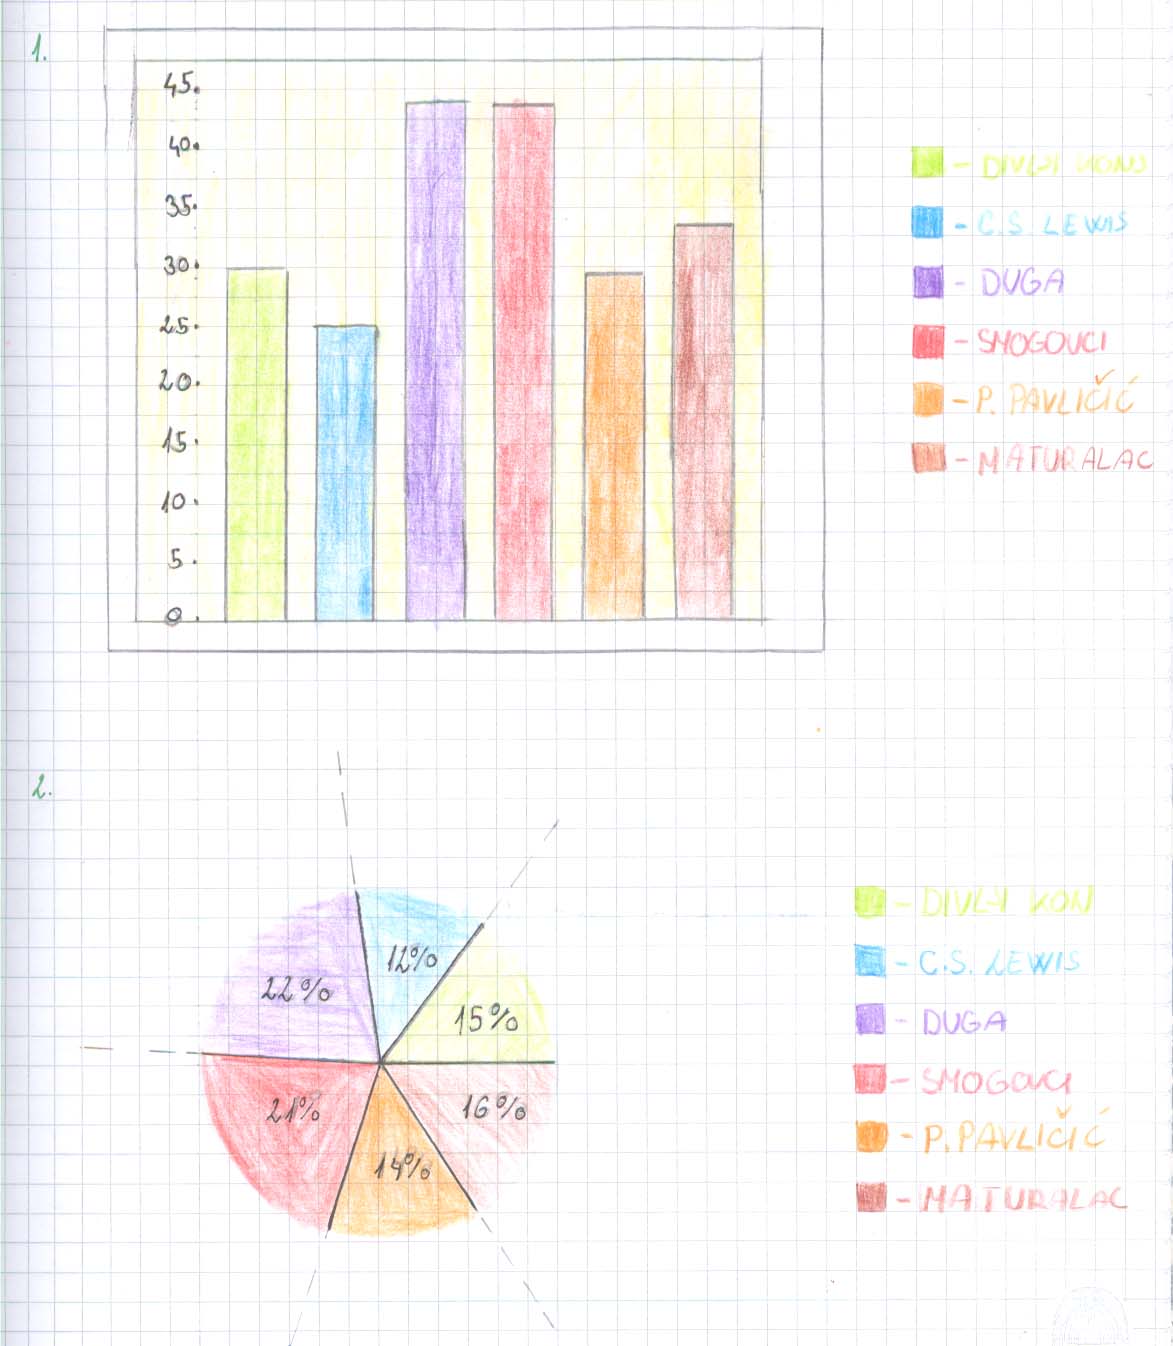 1.
45.
40.
35.
30.
25.
20.
15.
10.
5.
0.
- DIVLJI KONJ
- C.S. LEWIS
- DUGA
- SMOGOVCI
- P. PAVLIČIĆ
- MATURALAC
2.
12%
22%
15%
21%
16%
14%
- DIVLJI KONJ
- C.S. LEWIS
- DUGA
- SMOGOVCI
- P. PAVLIČIĆ
- MATURALAC